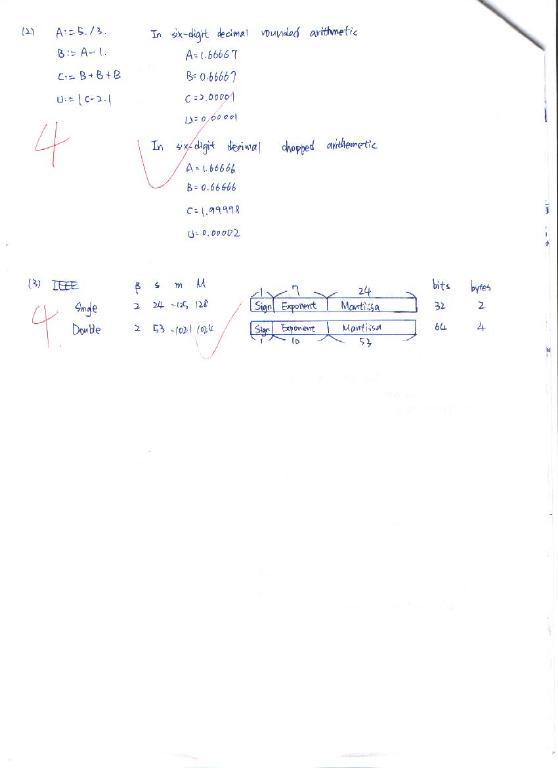 (2) A:=5./3. In six-digit decimal rounded arithmetic
B:=A-1. A=1.66667
C:=B+B+B B=0.66667
U:=|C-2.| C=2.00001
U=0.00001
4
In six-digit decimal chopped arithmetic
A=1.66666
B=0.66666
C=1.99998
U=0.00002
(3) IEEE β s m M 1 7 24 bits bytes
Single 2 24 -125 128 Sign Exponent Mantissa 32 2
4
Double 2 53 -1021 1024 Sign Exponent Mantissa 64 4
1 10 53